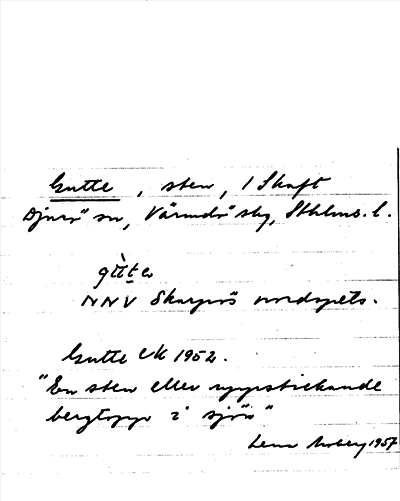 Gutte, sten, 1 Skaft
Djurö sn, Värmdö skg, Sthlms l.
NNV Skarprö nordspets.
Gutte EK 1952.
"En sten eller uppstickande
bergtopp i sjön"
Lena Moberg 1957